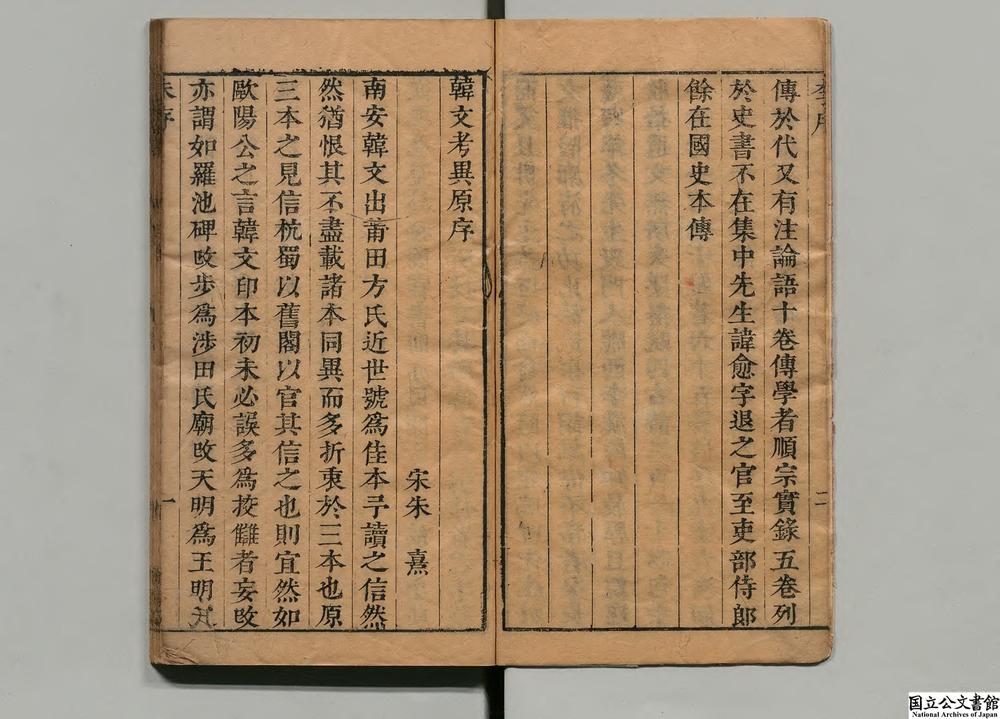 李序
傳於代又有注論語十卷傳學者順宗實錄五卷列
於史書不在集中先生諱愈字退之官至吏部侍郎
餘在國史本傳
二
韓文考異原序
宋朱熹
南安韓文出莆田方氏近世號爲佳本予讀之信然
然猶恨其不盡載諸本同異而多折衷於三本也原
三本之見信杭蜀以舊閣以官其信之也則宜然如
歐陽公之言韓文印本初未必誤多爲挍讎者妄改
亦謂如羅池碑改步爲涉田氏廟改天明爲王明
朱序
一
国立公文書館
National Archives of Japan